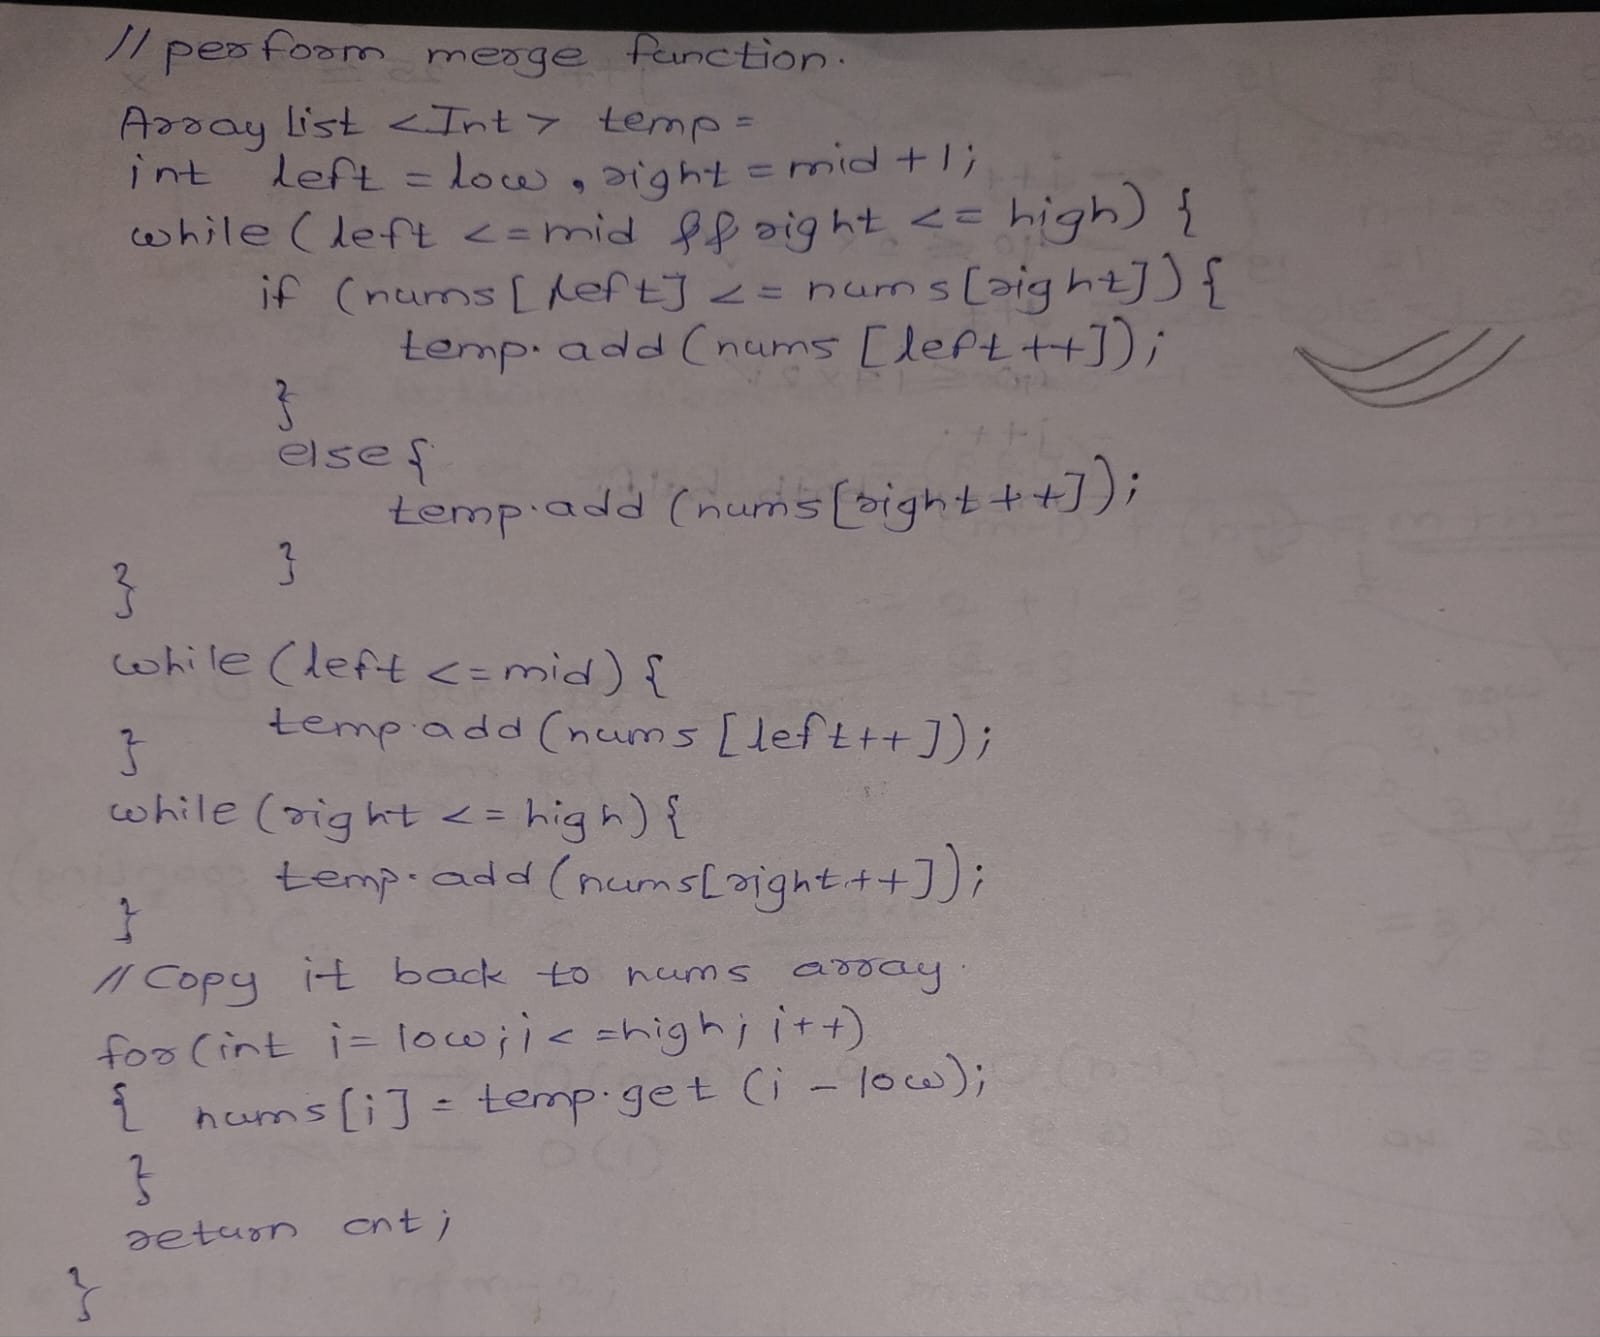 // perform merge function.
Array list <Int> temp =
int left = low, right = mid + 1;
while (left <= mid && right <= high) {
if (nums [left] <= nums [right]) {
temp.add (nums [left++]);
}
else {
temp.add (nums [right++]);
}
}
while (left <= mid) {
temp.add (nums [left++]);
}
while (right <= high) {
temp.add (nums [right++]);
}
// Copy it back to nums array.
for (int i = low; i <= high; i++)
{ nums [i] = temp.get (i - low);
}
return cnt;
}